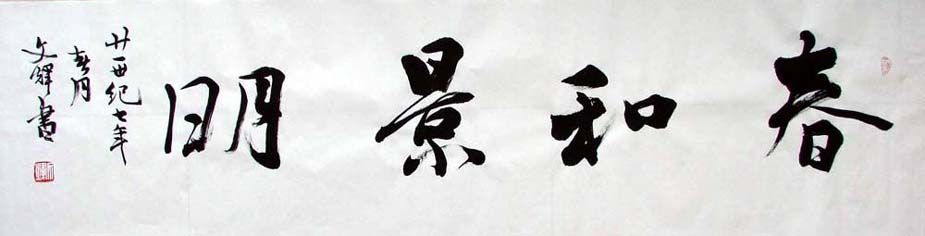 春和景明
廿一世纪七年
春月
文 書